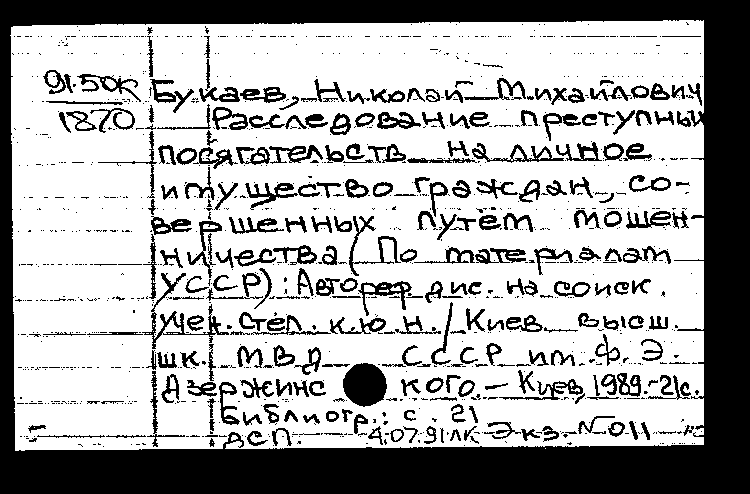 91-50К Букаев, Николай Михайлович
1870 Расследование преступных
посягательств на личное
имущество граждан, со-
вершенных путём мошен-
ничества (По материалам
УССР): Автореф дис. на соиск.
учен. степ. к.ю.н. / Киев высш.
шк. МВД СССР им. Ф. Э.
Дзержинского. – Киев, 1989.-21с.
Библиогр.: с. 21
ДСП. 4.07.91 ЛК Экз. № 011